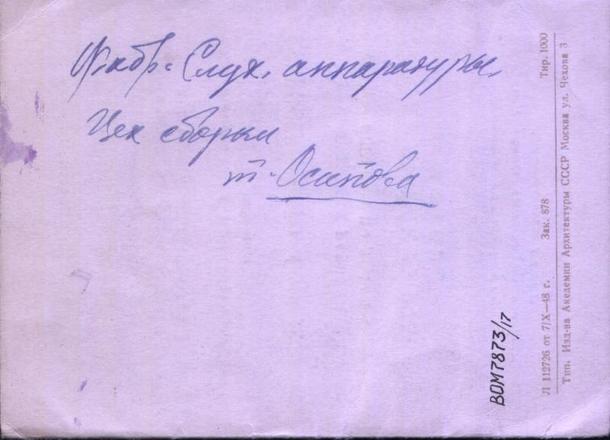 Фабр. Слух. аппаратуры.
Цех сборки
т. Осипова
ВОМ7873/17
Л 112726 от 7/X—48 г. Зак. 878 Тир. 1000
Тип. Изд-ва Академии Архитектуры СССР Москва ул. Чехова 3